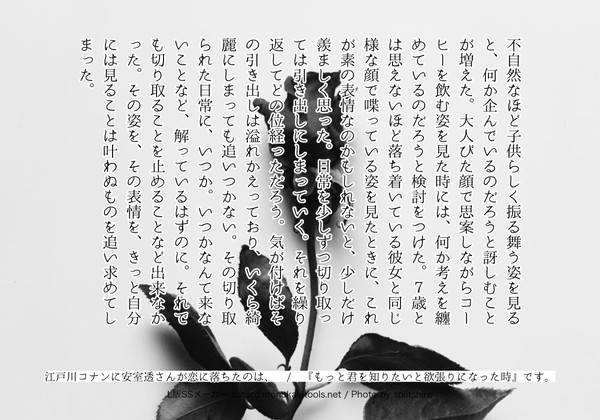 不自然なほど子供らしく振る舞う姿を見る
と、何か企んでいるのだろうと訝しむこと
が増えた。大人びた顔で思案しながらコー
ヒーを飲む姿を見た時には、何か考えを纏
めているのだろうと検討をつけた。7歳と
は思えないほど落ち着いている彼女と同じ
様な顔で喋っている姿を見たときに、これ
が素の表情なのかもしれないと、少しだけ
羨ましく思った。日常を少しずつ切り取っ
ては引き出しにしまっていく。それを繰り
返してどの位経っただろう。気が付けばそ
の引き出しは溢れかえっており、いくら綺
麗にしまっても追いつかない。その切り取
られた日常に、いつか。いつかなんて来な
いことなど、解っているはずのに。それで
も切り取ることを止めることなど出来なか
った。その姿を、その表情を、きっと自分
には見ることは叶わぬものを追い求めてし
まった。
江戸川コナンに安室透さんが恋に落ちたのは、 / 『もっと君を知りたいと欲張りになった時』です。
L版SSメーカー
tools.net / Photo by